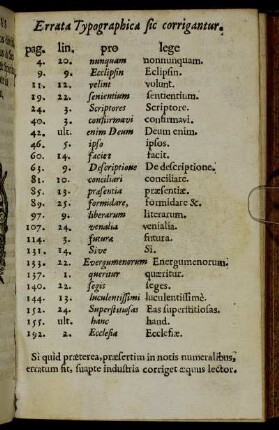 Errata Typographica sic corrigantur.
pag. lin. pro lege
4. 20. nunquam nonnunquam.
9. 9. Ecclipsin Eclipsin.
11. 12. velint volunt.
19. 22. senientium sentientium.
24. 3. Scriptores Scriptore.
40. 3. consirmavi confirmavi.
42. ult. enim Deum Deum enim.
46. 5. ipso ipsos.
60. 14. faciet facit.
63. 9. Descriptione De descriptione.
81. 10. conciliari conciliare.
85. 13. præsentia præsentiæ.
89. 25. formidare, formidare &c.
97. 9. liberarum literarum.
107. 24. venalia venialia.
114. 3. futura futura.
131. 14. Sive Si.
133. 22. Evergumenorum Energumenorum.
137. 1. queritur quæritur.
140. 22. segis seges.
144. 13. luculentissimi luculentissimè.
152. 24. Superstitiosas Eas superstitiosas.
155. ult. hanc haud.
192. 2. Ecclesia Ecclesiæ.
Si quid præterea, præsertim in notis numeralibus,
erratum sit, suapte industria corriget æquus lector.